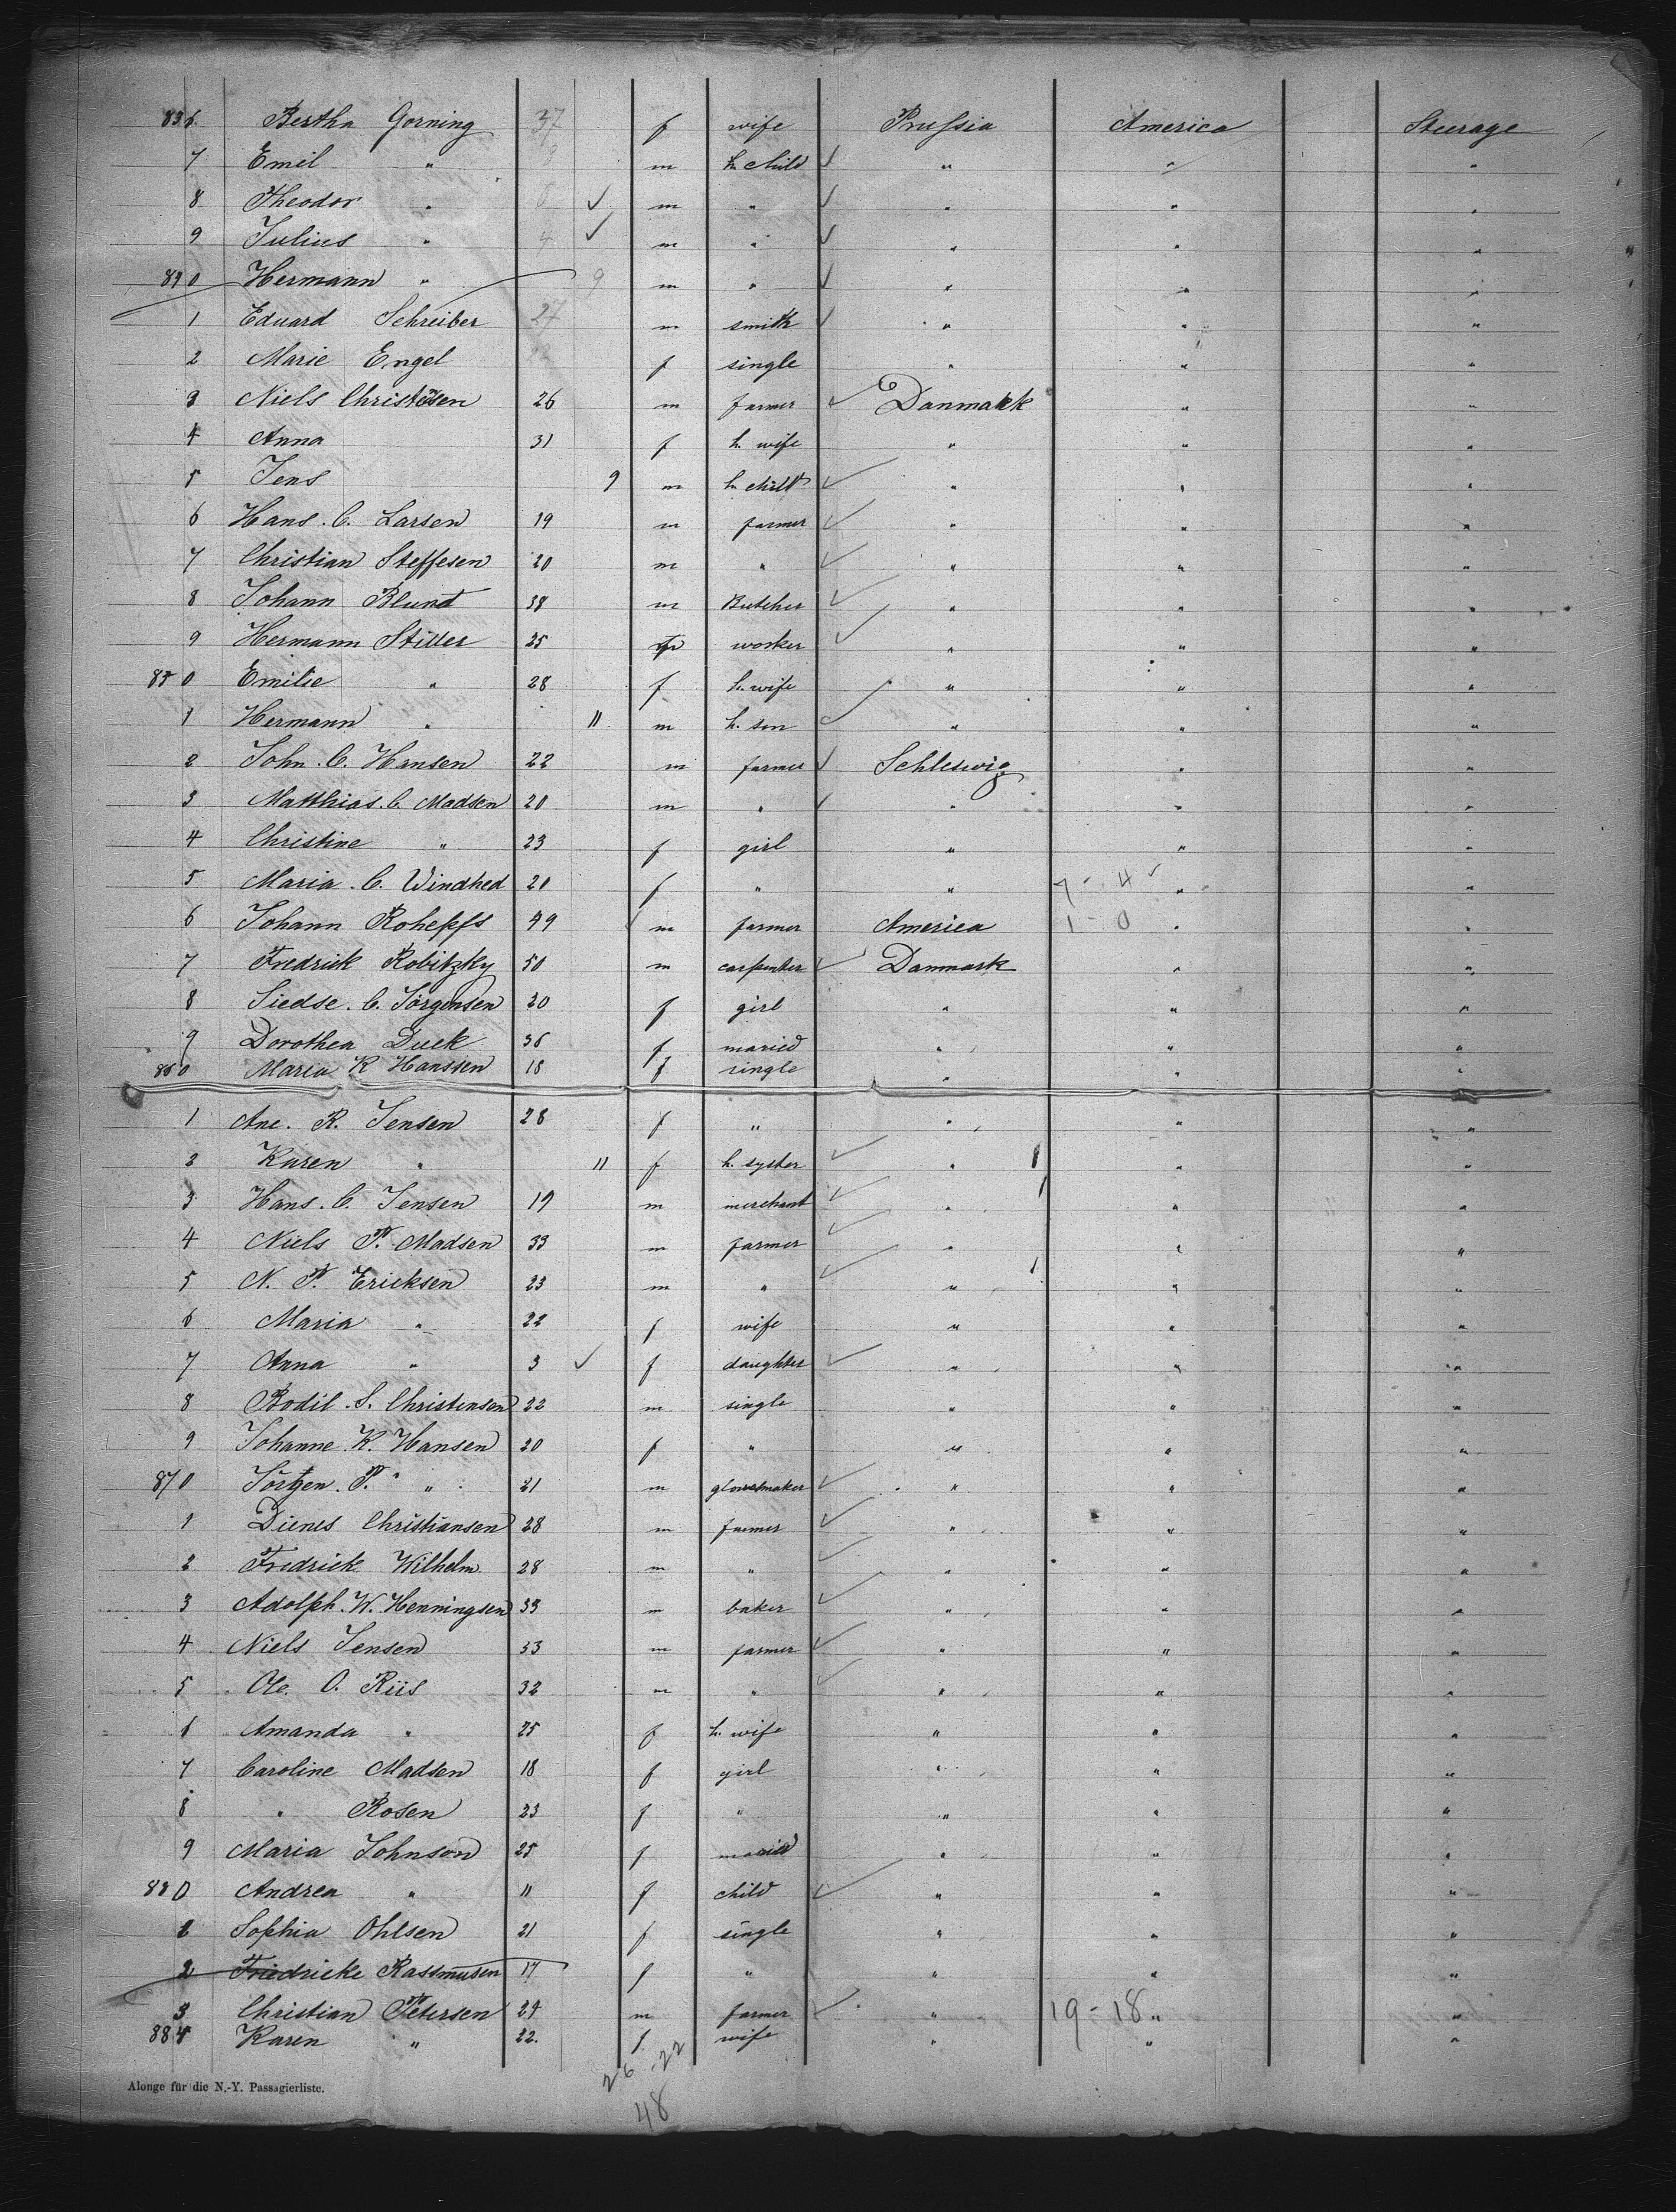 836 Bertha Gorning 37 f wife Prussia America Steerage
7 Emil " m h. child " " "
8 Theodor " 6 m " " " "
9 Julius " 4 m " " " "
840 Hermann " 9 m " " " "
1 Eduard Schreiber 27 m smith " " "
2 Marie Engel 22 f single " " "
3 Niels 26 m farmer Danmark " "
4 Anna 31 f h. wife " " "
5 Jens 9 m h. child " " "
6 Hans. C. Larsen 19 m farmer " " "
7 Christian Steffesen 20 m " " " "
8 Johann Blund 38 m Butcher " " "
9 Hermann Stiller 25 m worker " " "
850 Emilie " 28 f h. wife " " "
1 Hermann " 11 m h. son " " "
2 John. C. Hansen 22 m farmer Schleswig " "
3 Matthias. C. Madsen 20 m " " " "
4 Christine " 23 f girl " " "
5 Maria. C. Windhed 20 f " " 7 - 4 " "
6 Johann 49 m farmer America 1 - 0 " "
7 Fredrick Robitzky 50 m carpenter Danmark " "
8 Siedse. C. Jörgensen 30 f girl " " "
9 Dorothea Duck 36 f maried " " "
860 Maria K Hanssen 18 f single " " "
1 Ane. R. Jensen 28 f " " " "
2 Karen " 11 f h. syster " " "
3 Hans. C. Jensen 19 m merchant " " "
4 Niels P. Madsen 33 m farmer " " "
5 N. P. Ericksen 23 m " " " "
6 Maria " 22 f wife " " "
7 Anna " 3 f daughter " " "
8 Bodil. S. Christensen 22 m single " " "
9 Johanne K. Hansen 20 f " " " "
870 Jörgen. P. " 21 m glovemaker " " "
1 Dienes Christiansen 28 m farmer " " "
2 Fredrick Wilhelm 28 m " " " "
3 Adolph. W. Henningsen 33 m baker " " "
4 Niels Jensen 33 m farmer " " "
5 Ole. O. Riis 32 m " " " "
6 Amanda " 25 f h. wife " " "
7 Caroline Madsen 18 f girl " " "
8 " Rosen 23 f " " " "
9 Maria Johnson 25 f maried " " "
880 Andrea " 11 f child " " "
1 Sophia Ohlsen 21 f single " " "
2 Friedricke Rassmusen 17 f " " " "
3 Christian Petersen 24 m farmer " 19 - 18 " "
884 Karen " 22. f wife " " "
26 - 22
48
Alonge für die N.-Y. Passagierliste.